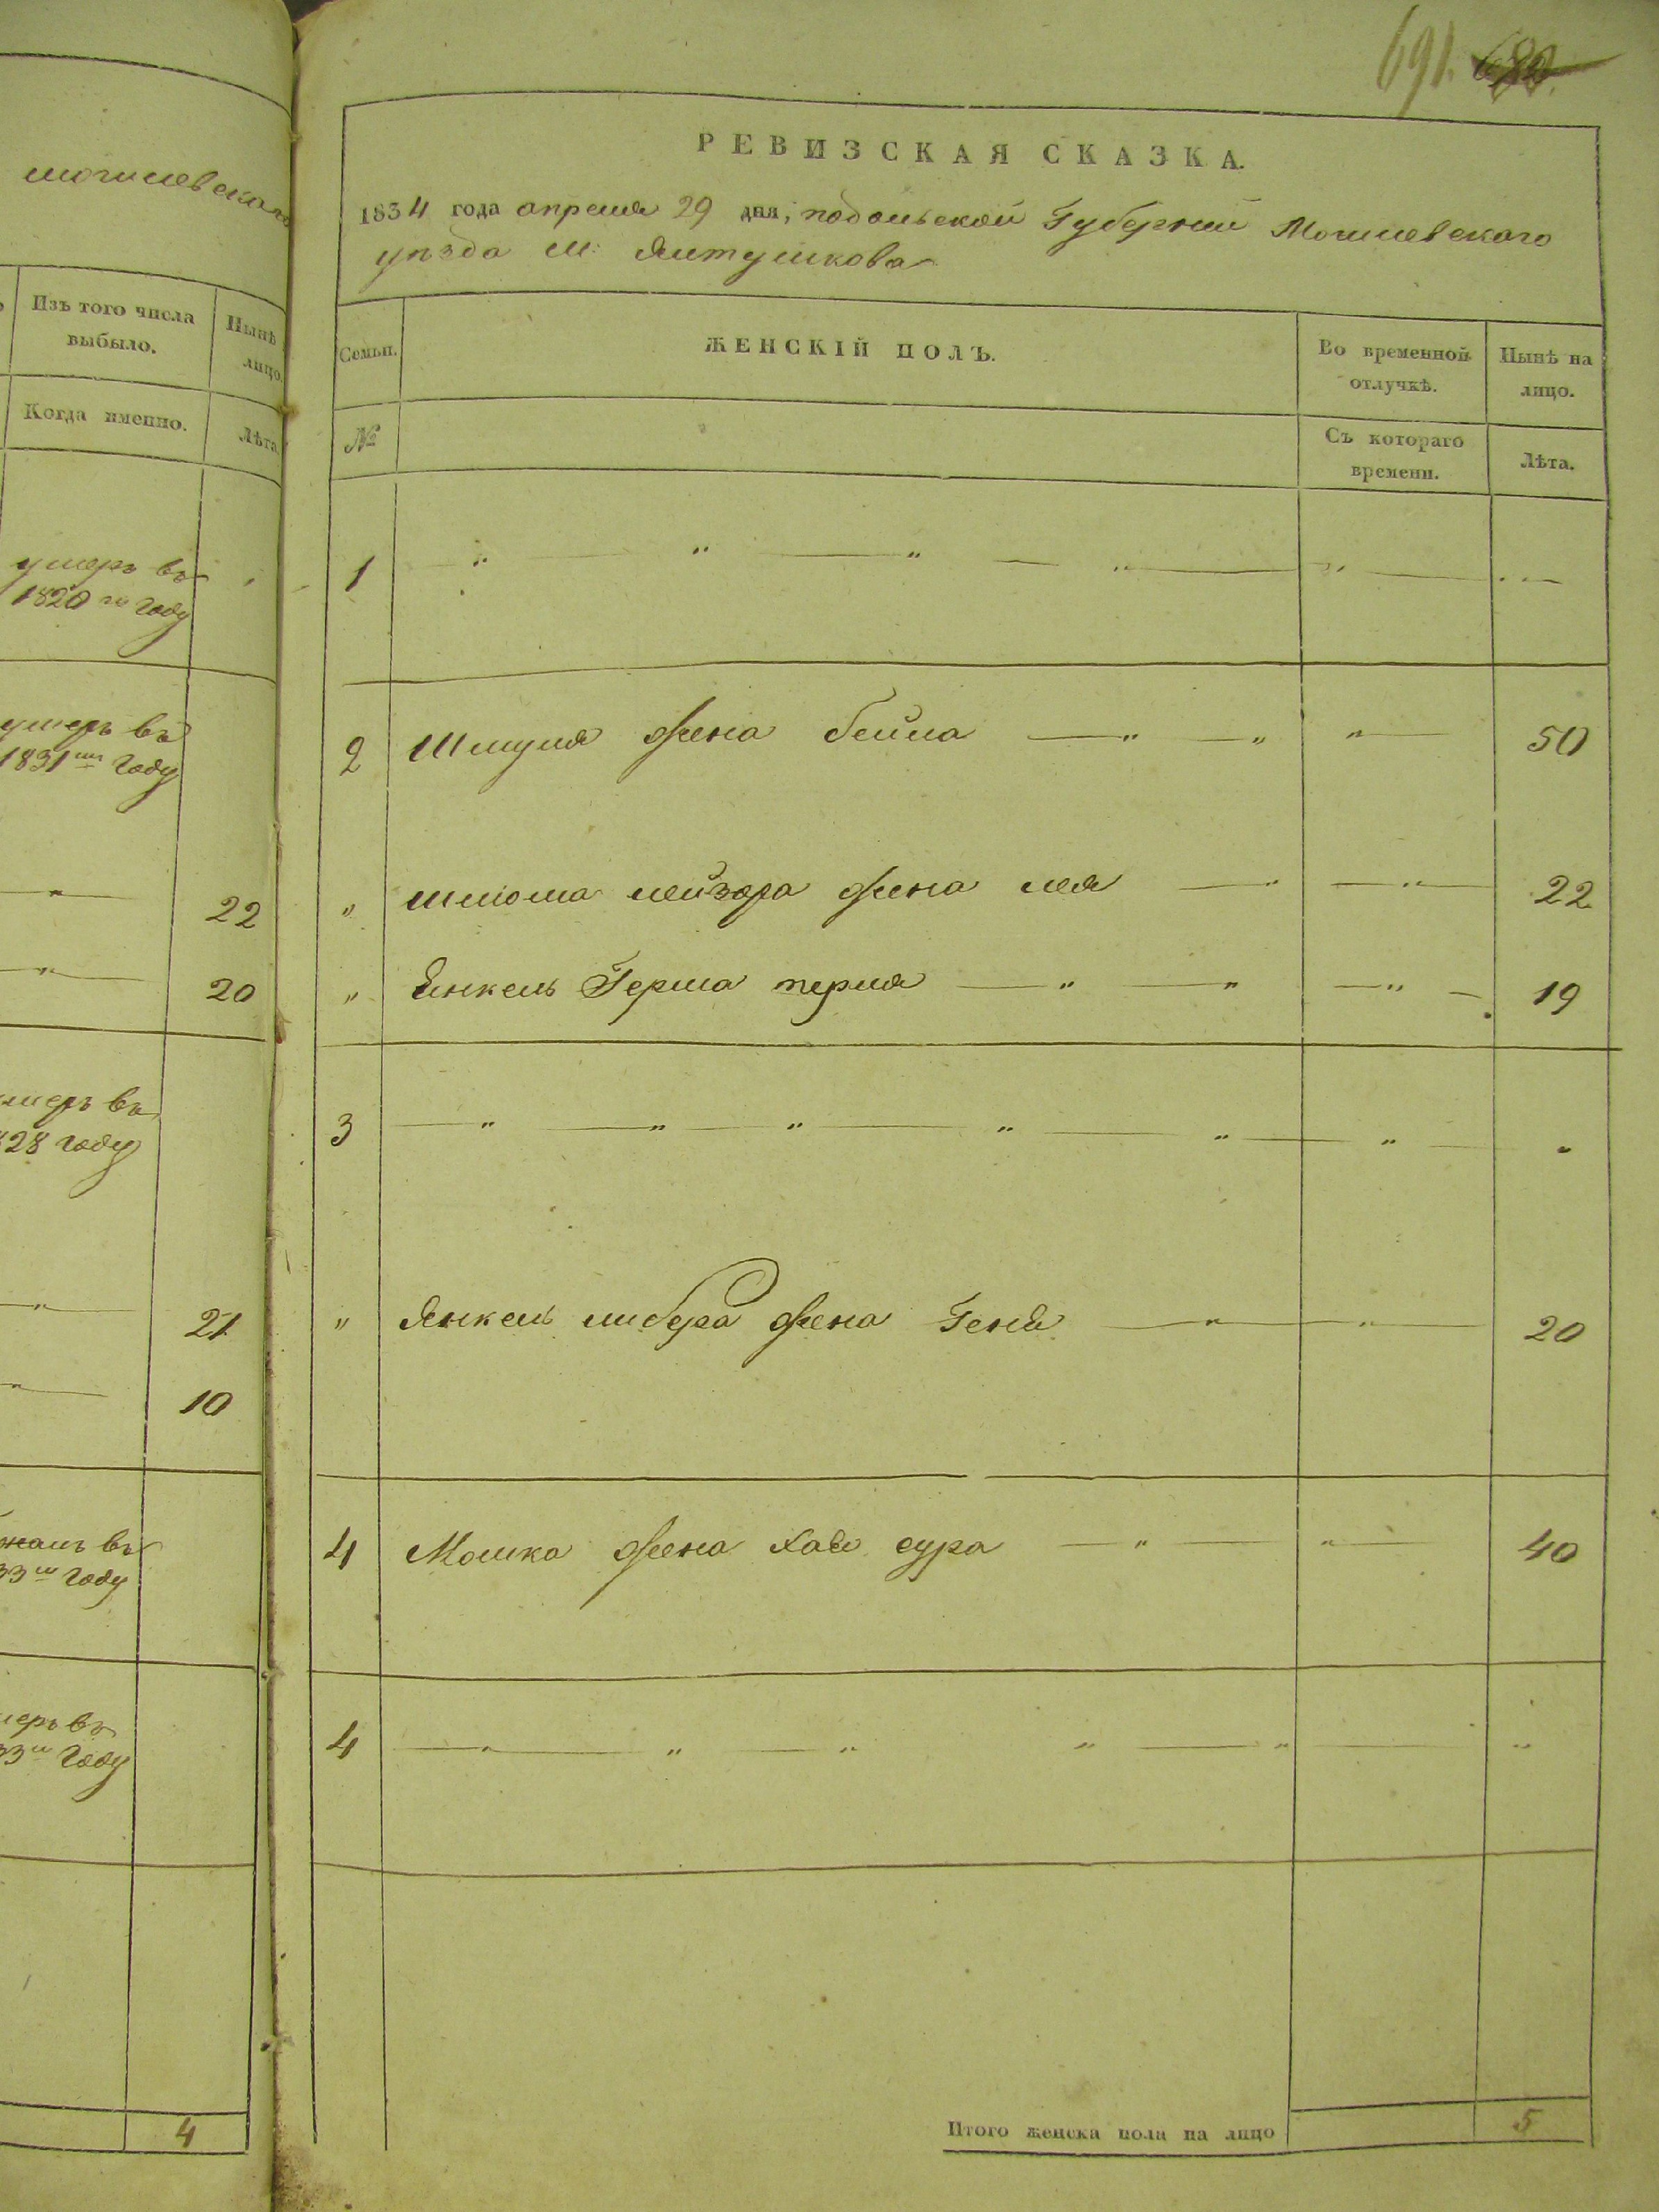 могилевскаго
Изъ того числа выбыло.
Нынѣ лицо.
Когда именно.
Лѣта
умеръ въ
1820 го году
умеръ въ
1831 мъ году
22
20
умеръ въ
828 году
21
10
въ
33 м году
меръ въ
33 м году
4
691.
РЕВИЗСКАЯ СКАЗКА.
1834 года апреля 29 дня, подольской Губернии Могилевскаго
уѣзда М: Ялтушкова
Семьи.
ЖЕНСКІЙ ПОЛЪ.
Во временной отлучкѣ.
Нынѣ на лицо.
№
Съ котораго времени.
Лѣта.
1 " " " " " "
2 Шмуля жена бейла " " " 50
" шлиома лейзора жена лея " " 22
" Янкель Герша перля " " " 19
3 " " " " " " "
" Янкель либера жена Геня " " 20
4 Мошка жена хая сура " " 40
4 " " " " " "
Итого женска пола на лицо 5